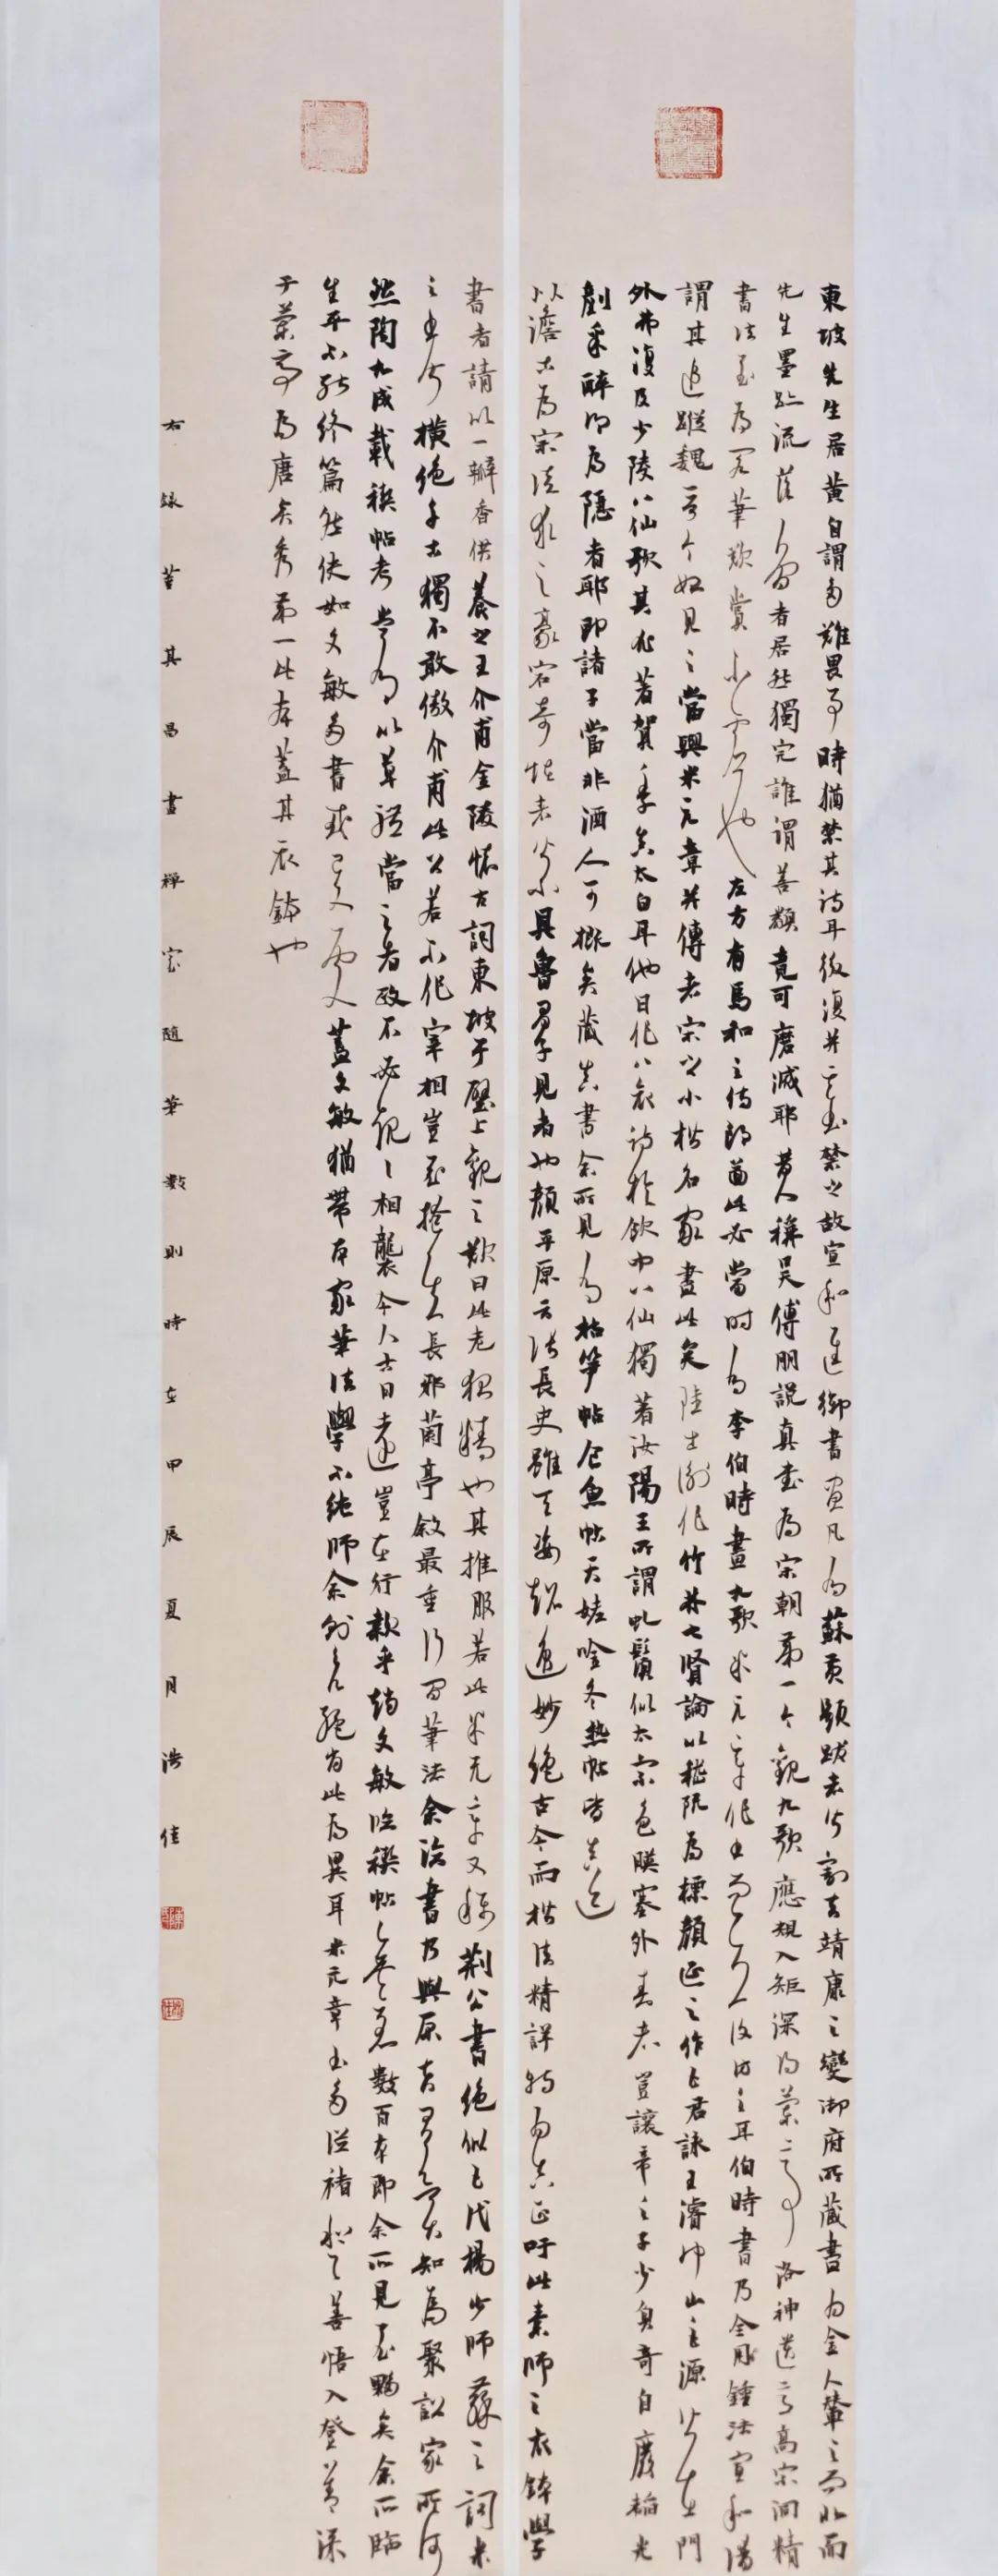 東坡先生居黃自謂多難畏事時猶禁其詩耳後復並書禁之故宣和進御書畫凡為蘇黃題跋者皆割去靖康之變御府所藏書為金人輦之而北而
先生墨跡流落人間者居然獨完誰謂善類竟可磨滅耶昔人稱吳傅朋說真書為宋朝第一今觀九歌應規入矩深得蘭亭洛神遺意高宗問精
書法至為閣筆歎賞不虛也左方有馬和之侍郎畫此必當時為李伯時畫九歌米元章作書伯時書乃全用鍾法宣和譜
謂其追蹤魏晉今始見之當與米元章并傳者宋之小楷名家盡此矣陸士衡作竹林七賢論以嵇阮為標顏延之作五君詠王濬沖山巨源皆在門
外弗復及少陵八仙歌其尤著賀季真太白耳他日作八哀詩於飲中八仙獨著汝陽王所謂虬鬚似太宗色映塞外春者豈讓帝之子少負奇自廢稻光
劃采醉鄉為隱者耶即諸子當非酒人可概矣藏真書余所見為枯筍帖食魚帖天姥吟冬熱帖皆真迹
以澹古為宗徒求之豪宕奇怪者皆不具魯男子見者也顏平原云張長史雖天姿超逸妙絕古今而楷法精詳特為真正吁此素師之衣缽學
書者請以一瓣香供養之王介甫金陵懷古詞東坡于壁上觀之歎曰此老狐精也其推服若此米元章又稱荊公書絕似五代楊少師蘇之詞米
之書皆橫絕千古獨不敢傲介甫此公若不作宰相豈至掩其長邪蘭亭敘最重行間筆法余論書乃與原知為聚訟家所訶
然陶九成載禊帖考嘗為以草體當之者政不必規規相襲今人去古日遠豈在行款乎趙文敏臨禊帖無慮數百本即余所見至夥矣余所臨
生平不能終篇然使如文敏多書或蓋文敏猶帶本家筆法學不純師余則欲絕肖此為異耳米元章書多從褚登善悟入登善深
于蘭亭為唐賢秀第一此本蓋其衣缽也
右錄董其昌畫禪室隨筆數則時在甲辰夏月浩佳